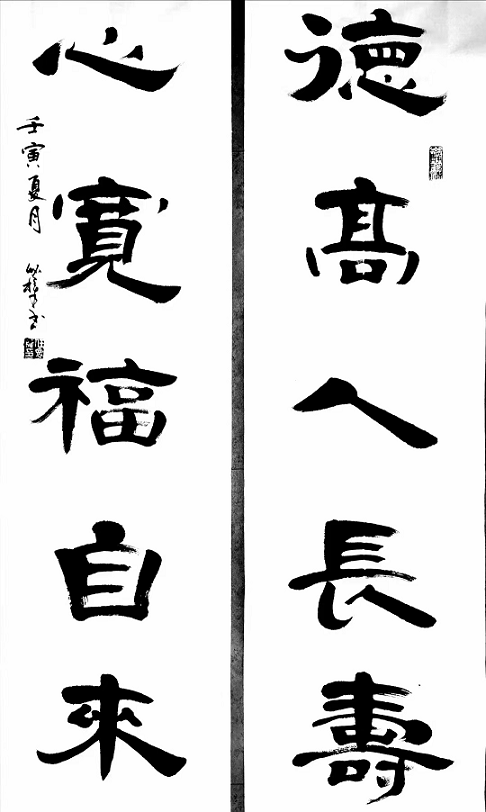 德高人長壽
心寬福自來
壬寅夏月